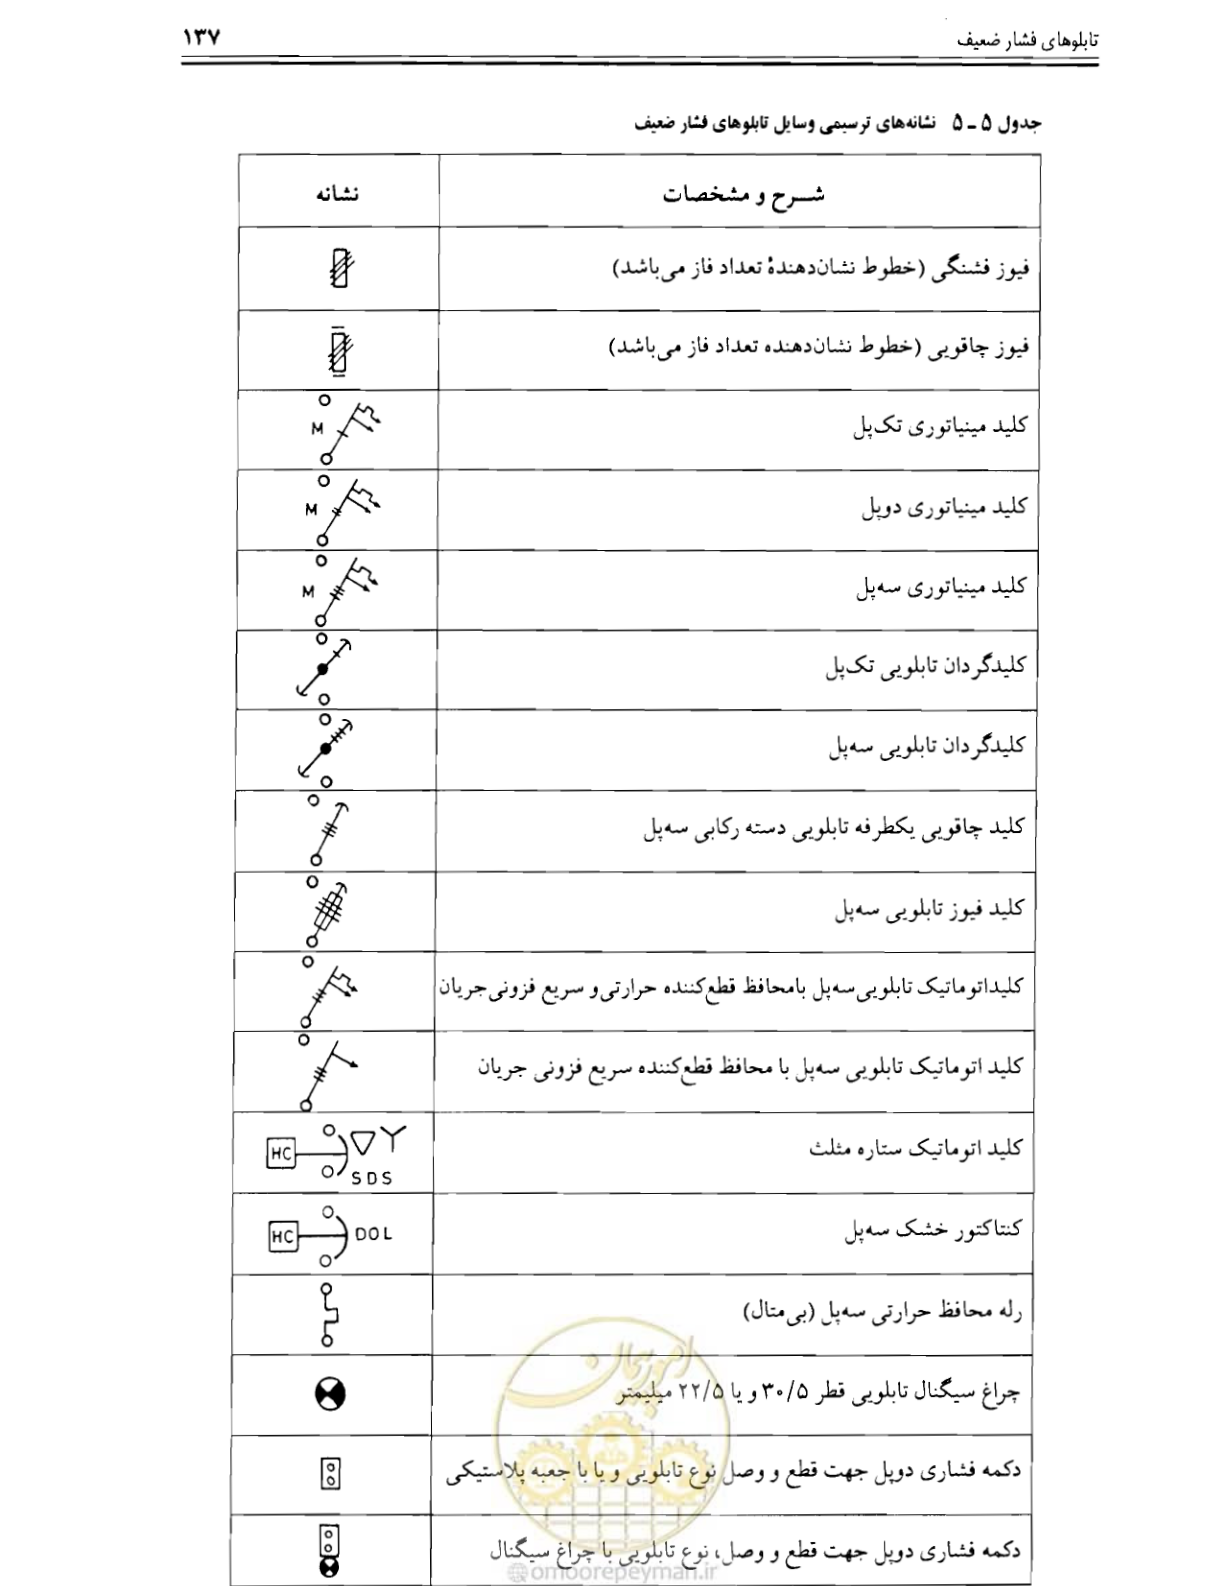 تابلوهای فشار ضعیف ۱۳۷
جدول ۵ ـ ۵ نشانه‌های ترسیمی وسایل تابلوهای فشار ضعیف
شــرح و مشخصات نشانه
فیوز فشنگی (خطوط نشان‌دهندهٔ تعداد فاز می‌باشد)
فیوز چاقویی (خطوط نشان‌دهنده تعداد فاز می‌باشد)
کلید مینیاتوری تک‌پل M
کلید مینیاتوری دوپل M
کلید مینیاتوری سه‌پل M
کلیدگردان تابلویی تک‌پل
کلیدگردان تابلویی سه‌پل
کلید چاقویی یکطرفه تابلویی دسته رکابی سه‌پل
کلید فیوز تابلویی سه‌پل
کلیداتوماتیک تابلویی‌سه‌پل بامحافظ قطع‌کننده حرارتی‌و سریع فزونی‌جریان
کلید اتوماتیک تابلویی سه‌پل با محافظ قطع‌کننده سریع فزونی جریان
کلید اتوماتیک ستاره مثلث HC SDS
کنتاکتور خشک سه‌پل HC DOL
رله محافظ حرارتی سه‌پل (بی‌متال)
چراغ سیگنال تابلویی قطر ۳۰/۵ و یا ۲۲/۵ میلیمتر
دکمه فشاری دوپل جهت قطع و وصل نوع تابلویی و یا با جعبه پلاستیکی
دکمه فشاری دوپل جهت قطع و وصل، نوع تابلویی با چراغ سیگنال
امور پیمان
@omoorepeyman.ir